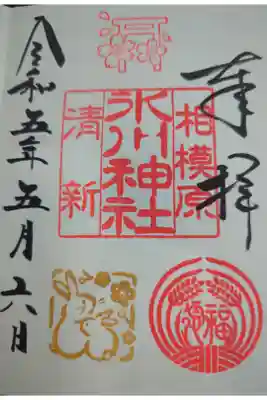 奉拝
相模原
氷川神社
清新
福
令和五年五月六日